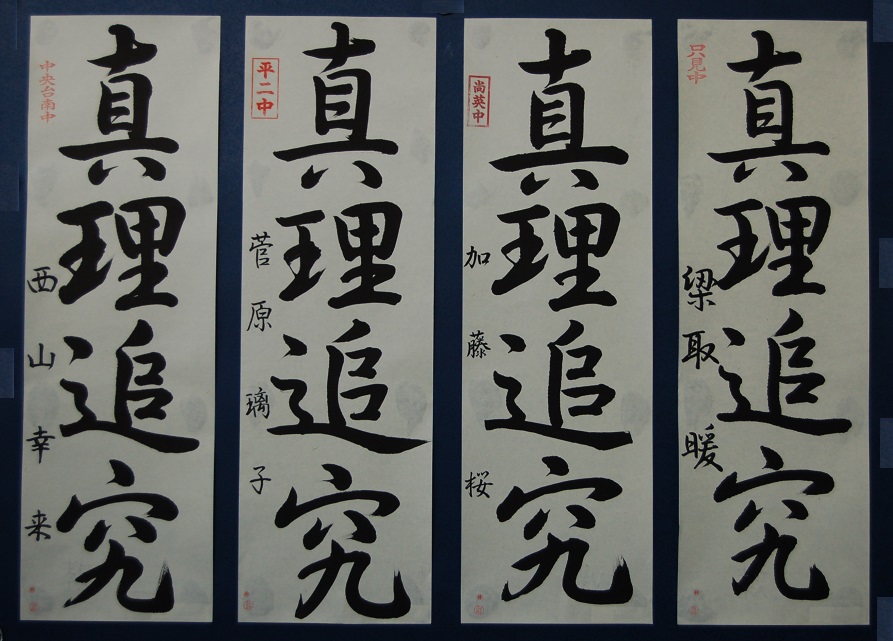 只見中
真理追究
梁取暖
尚英中
真理追究
加藤桜
平二中
真理追究
菅原璃子
中央台南中
真理追究
西山幸来